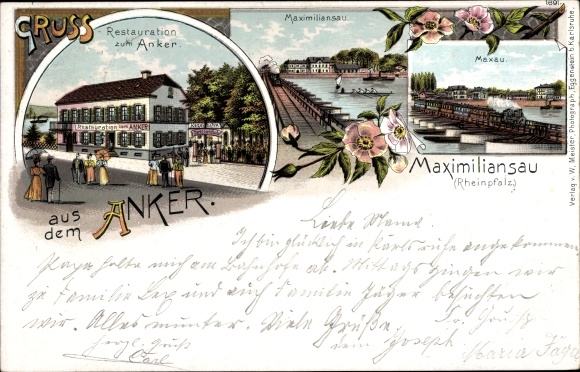 GRUSS
aus dem ANKER.
Restauration
zum Anker.
Restauration zum ANKER
Maximiliansau.
Maxau.
1891
Maximiliansau
(Rheinpfalz)
Verlag v. W. Meister, Photograph, Eggenstein b. Karlsruhe.
Liebe Mama.
Ich bin glücklich in Karlsruhe angekommen
Papa holte mich am Bahnhofe ab. Mittags gingen wir
zu Familie Lex und auch Familie Jäger besuchten
wir. Alles munter. Viele Grüße.
herzl. Gruß
Carl
dein Joseph
Maria Jäger